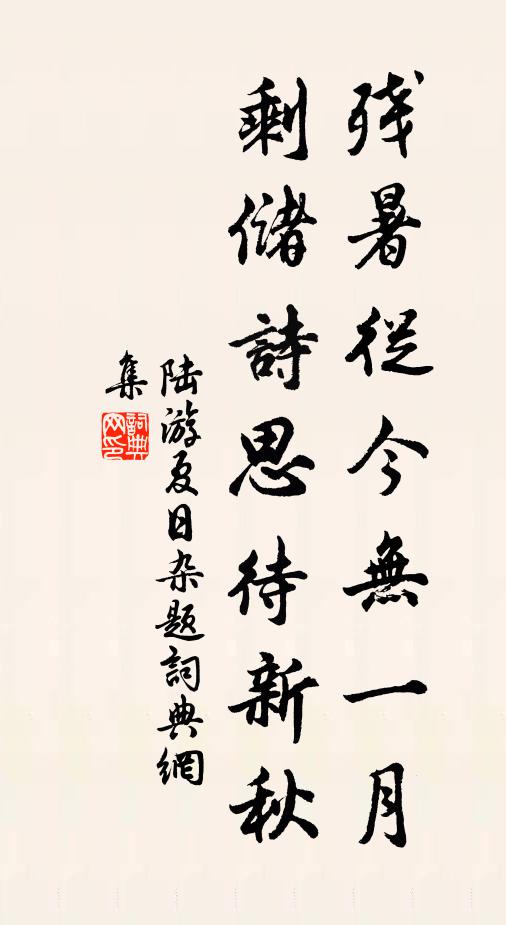 残暑從今無一月
剩儲詩思待新秋
陆游夏日杂题詞典網
集
詞典
网印